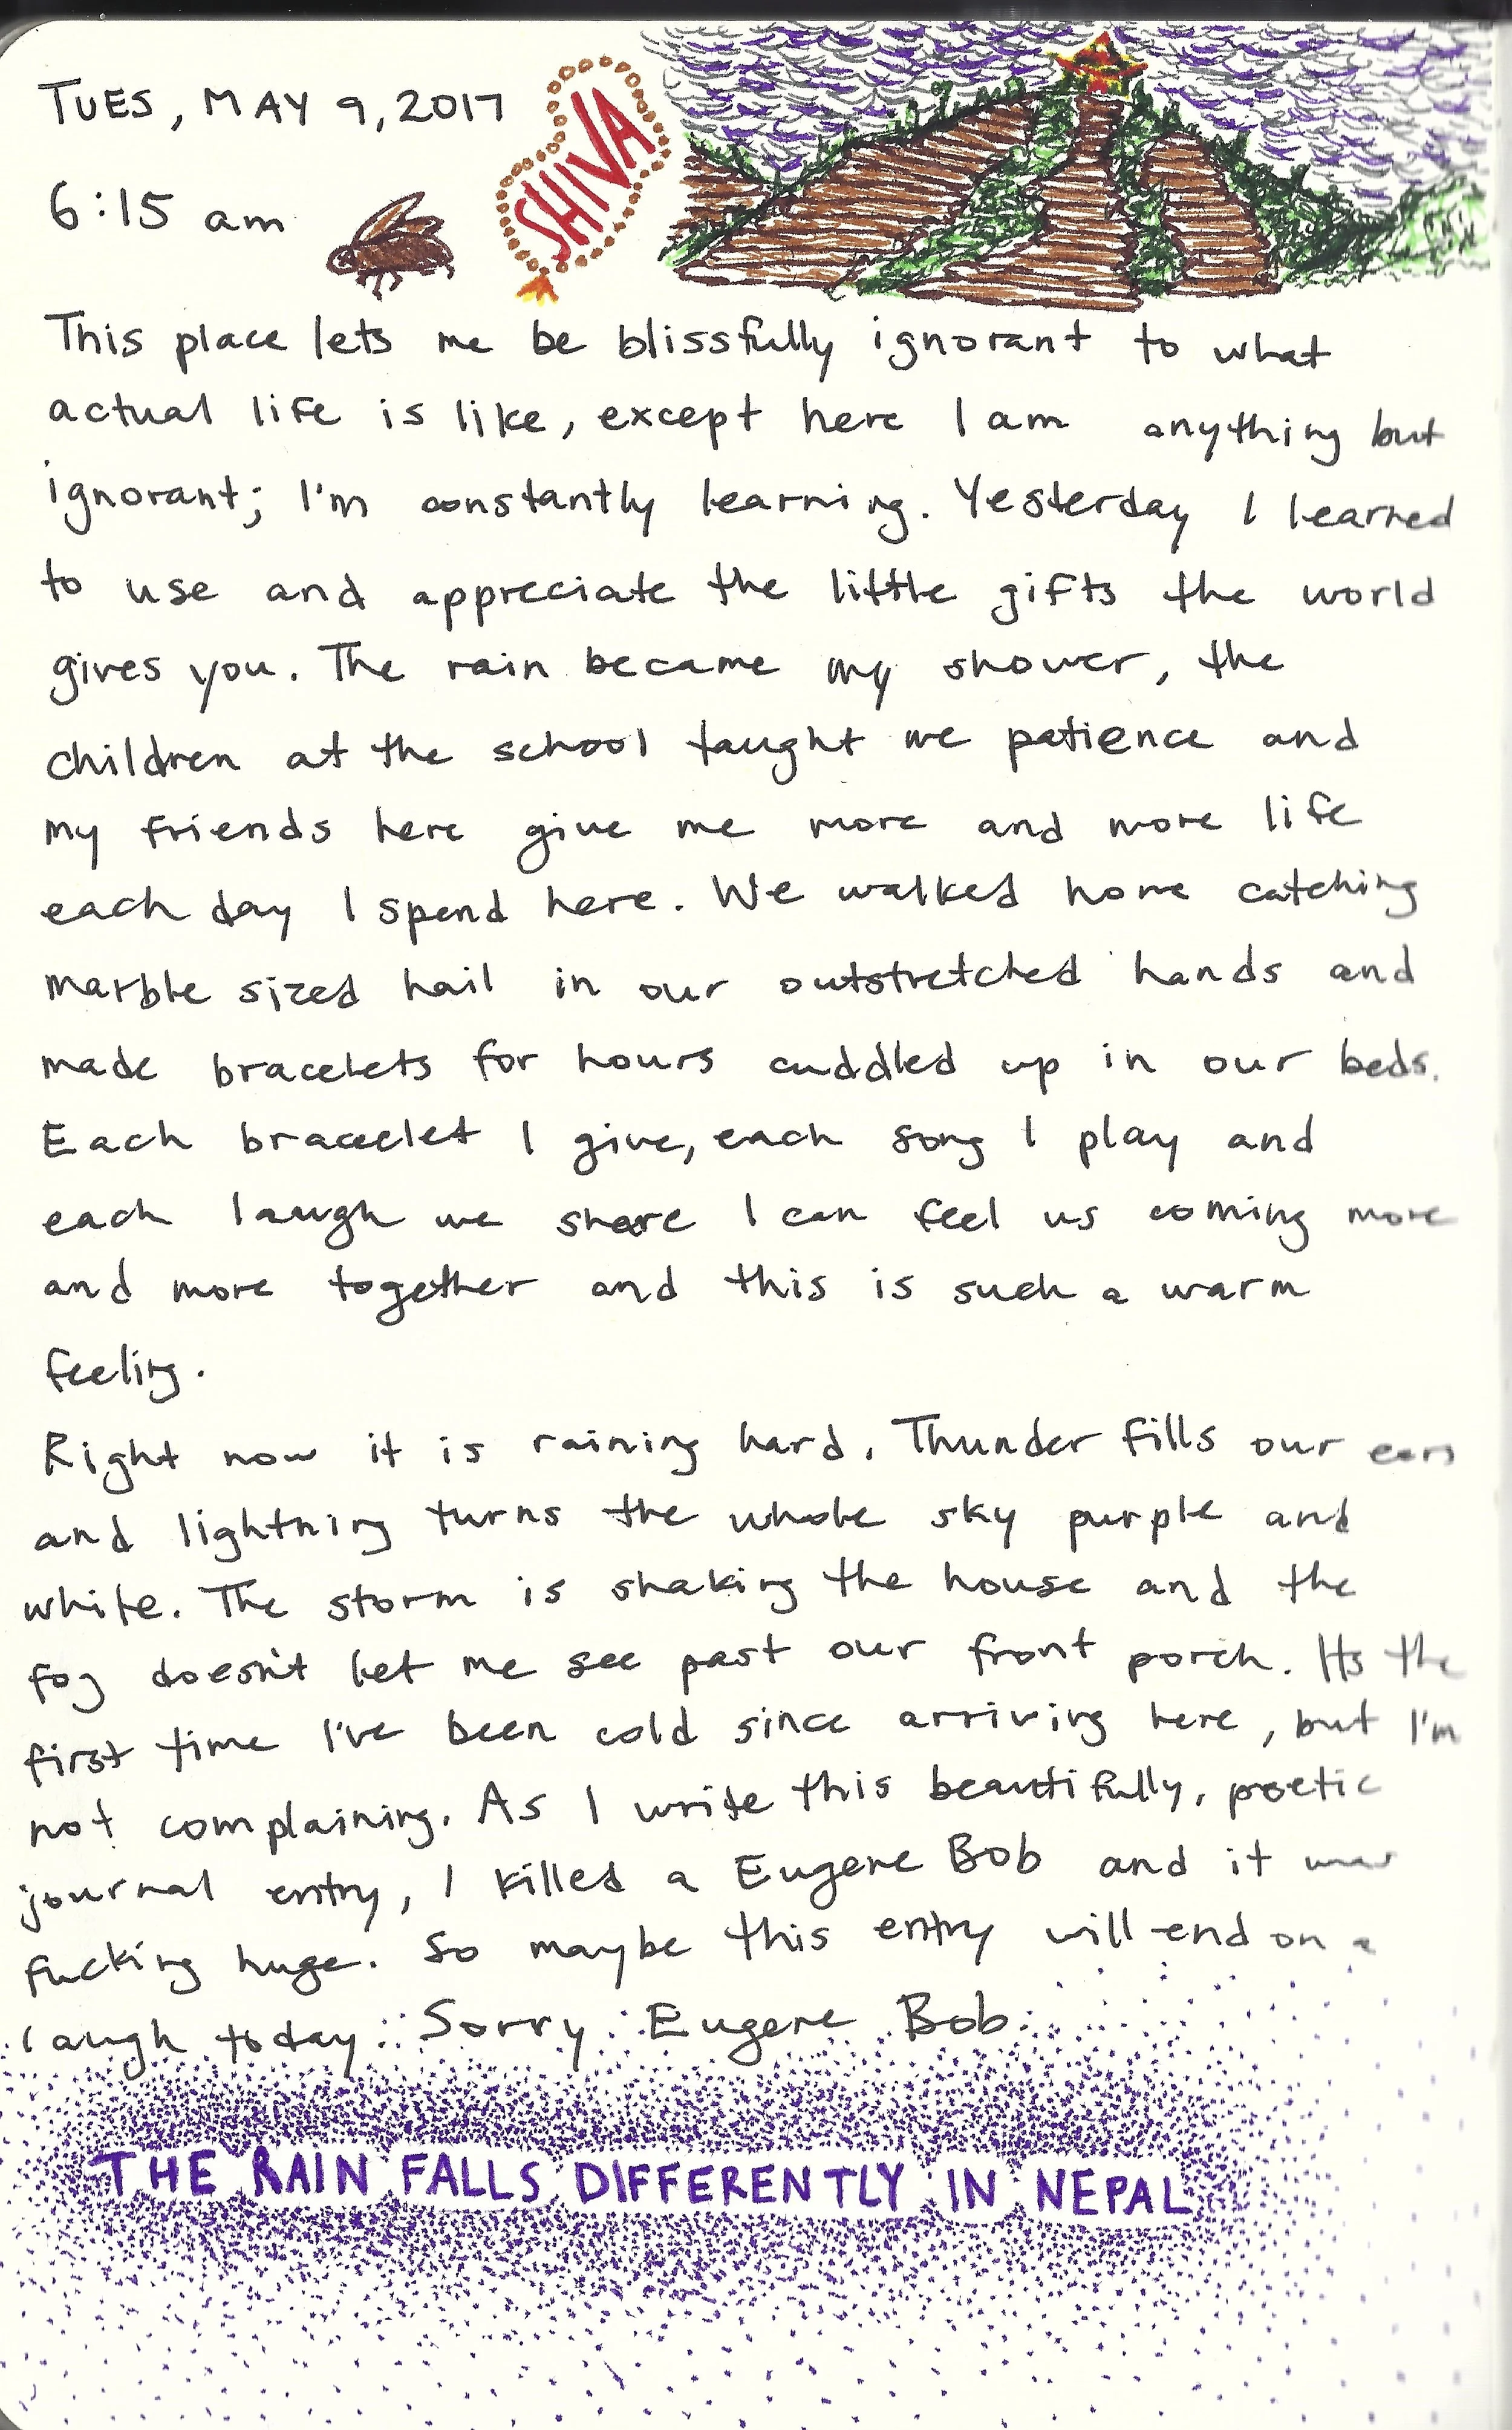 TUES, MAY 9, 2017
SHIVA
6:15 am
This place lets me be blissfully ignorant to what
actual life is like, except here I am anything but
ignorant; I'm constantly learning. Yesterday I learned
to use and appreciate the little gifts the world
gives you. The rain became my shower, the
children at the school taught me patience and
my friends here give me more and more life
each day I spend here. We walked home catching
marble sized hail in our outstretched hands and
made bracelets for hours cuddled up in our beds.
Each bracelet I give, each song I play and
each laugh we share I can feel us coming more
and more together and this is such a warm
feeling.
Right now it is raining hard. Thunder fills our ears
and lightning turns the whole sky purple and
white. The storm is shaking the house and the
fog doesn't let me see past our front porch. Its the
first time I've been cold since arriving here, but I'm
not complaining. As I write this beautifully, poetic
journal entry, I killed a Eugene Bob and it was
fucking huge. So maybe this entry will end on a
laugh today. Sorry Eugene Bob.
THE RAIN FALLS DIFFERENTLY IN NEPAL